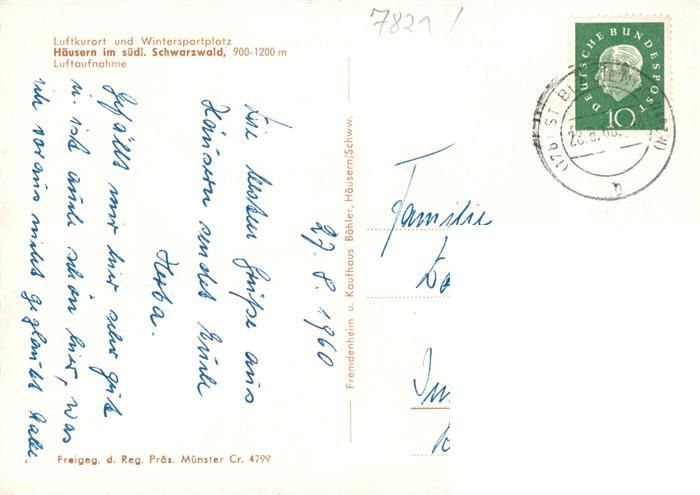 7821/
Luftkurort und Wintersportplatz
Häusern im südl. Schwarzwald, 900-1200 m
Luftaufnahme
27. 8. 1960
Die besten Grüße aus
Häusern sendet Euch
Herta.
Gefällt mir hier sehr gut
u. ist auch schön hier, was
ich voraus nicht geglaubt habe.
Freigeg. d. Reg. Präs. Münster Cr. 4799
Fremdenheim u. Kaufhaus Böhler, Häusern/Schww.
DEUTSCHE BUNDESPOST
10
(17b) ST BLASIEN
h
Familie